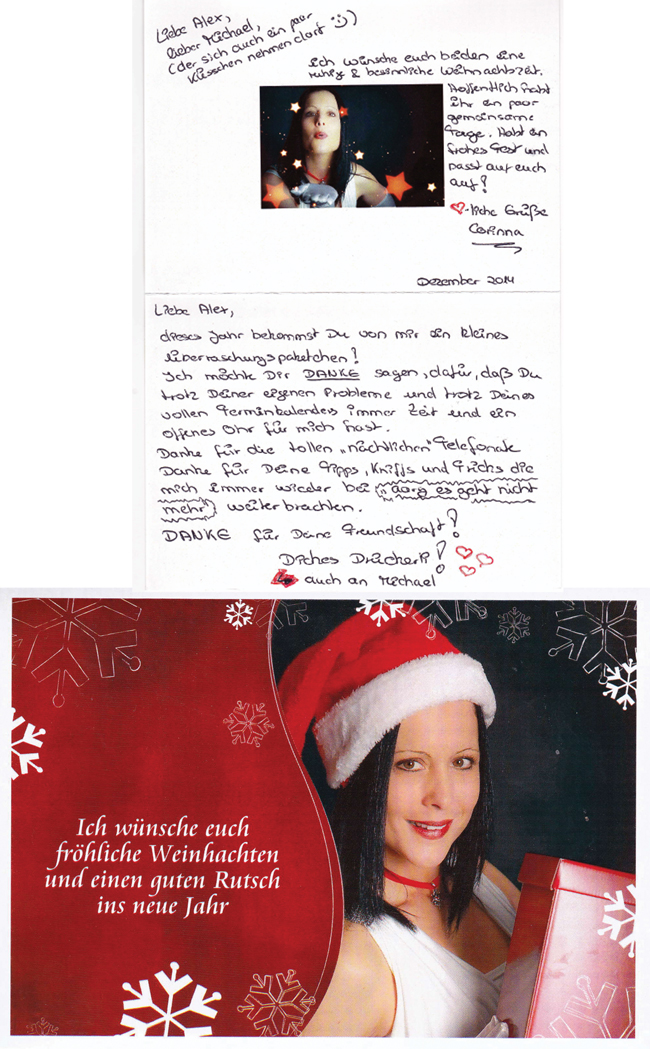 Liebe Alex,
lieber Michael,
(der sich auch ein paar
Küsschen nehmen darf :))
ich wünsche euch beiden eine
ruhig & besinnliche Weihnachtszeit.
Hoffentlich habt
ihr ein paar
gemeinsame
Tage. Habt ein
frohes Fest und
passt auf euch
auf!
♡-liche Grüße
Corinna
Dezember 2014
Liebe Alex,
dieses Jahr bekommst Du von mir ein kleines
Überraschungspaketchen!
Ich möchte Dir DANKE sagen, dafür, daß Du
trotz Deiner eigenen Probleme und trotz Deines
vollen Terminkalenders immer Zeit und ein
offenes Ohr für mich hast.
Danke für die tollen „nächtlichen" Telefonate
Danke für Deine Tipps, Kniffs und Tricks die
mich immer wieder bei („aarg es geht nicht
mehr") weiterbrachten.
DANKE für Deine Freundschaft!
Dickes Drückerli!
auch an Michael
Ich wünsche euch
fröhliche Weinhachten
und einen guten Rutsch
ins neue Jahr